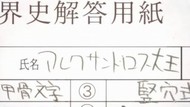 界史解答用紙
氏名 アレクサンドロス大王
甲骨文字 ③ 竪穴